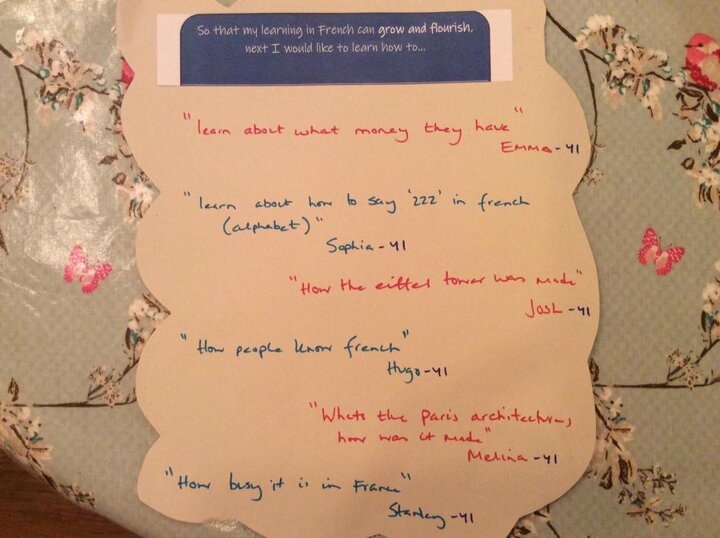 So that my learning in French can grow and flourish,
next I would like to learn how to...
"learn about what money they have"
Emma - Y1
"learn about how to say 'zzz' in french
(alphabet)"
Sophia - Y1
"How the eiffel tower was made"
Josh - Y1
"How people know french"
Hugo - Y1
"Whats the Paris architecture,
how was it made"
Melina - Y1
"How busy it is in France"
Stanley - Y1